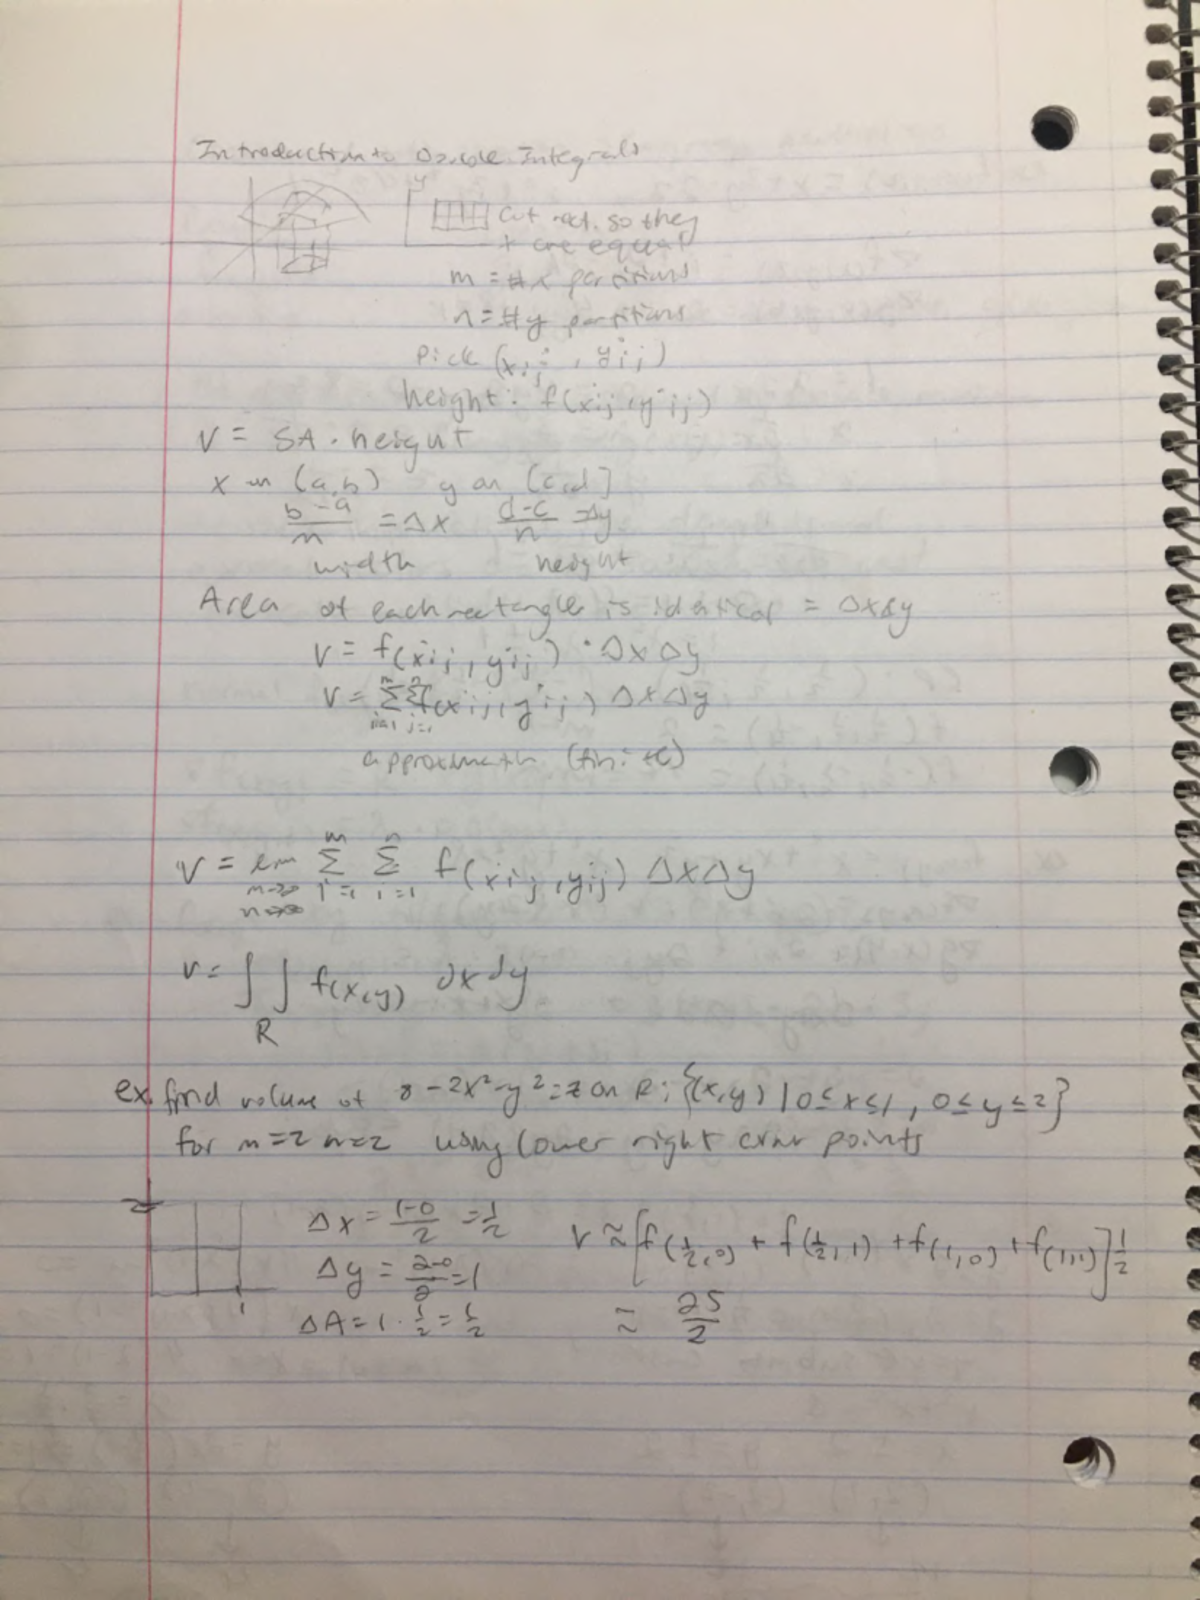 Introduction to Double Integrals
y
cut rect. so they
x are equal
m = # x partitions
n = # y partitions
Pick (xij, yij)
height: f(xij, yij)
V = SA · height
x on (a,b) y on [c,d]
b-a/m = Δx d-c/n = Δy
width height
Area of each rectangle is identical = ΔxΔy
V = f(xij, yij) · ΔxΔy
V = m∑i=1 n∑j=1 f(xij, yij) ΔxΔy
approximate (finite)
V = lim m→∞ n→∞ m∑i=1 n∑i=1 f(xij, yij) ΔxΔy
V = ∫∫ f(x,y) dx dy
R
ex. find volume of 8-2x²-y²=z on R: {(x,y) | 0≤x≤1, 0≤y≤2}
for m=2 n=2 using lower right corner points
2 Δx = 1-0/2 = 1/2 V ≈ [f(1/2,0) + f(1/2,1) + f(1,0) + f(1,1)] 1/2
Δy = 2-0/2 = 1
1 ΔA = 1 · 1/2 = 1/2 ≈ 25/2